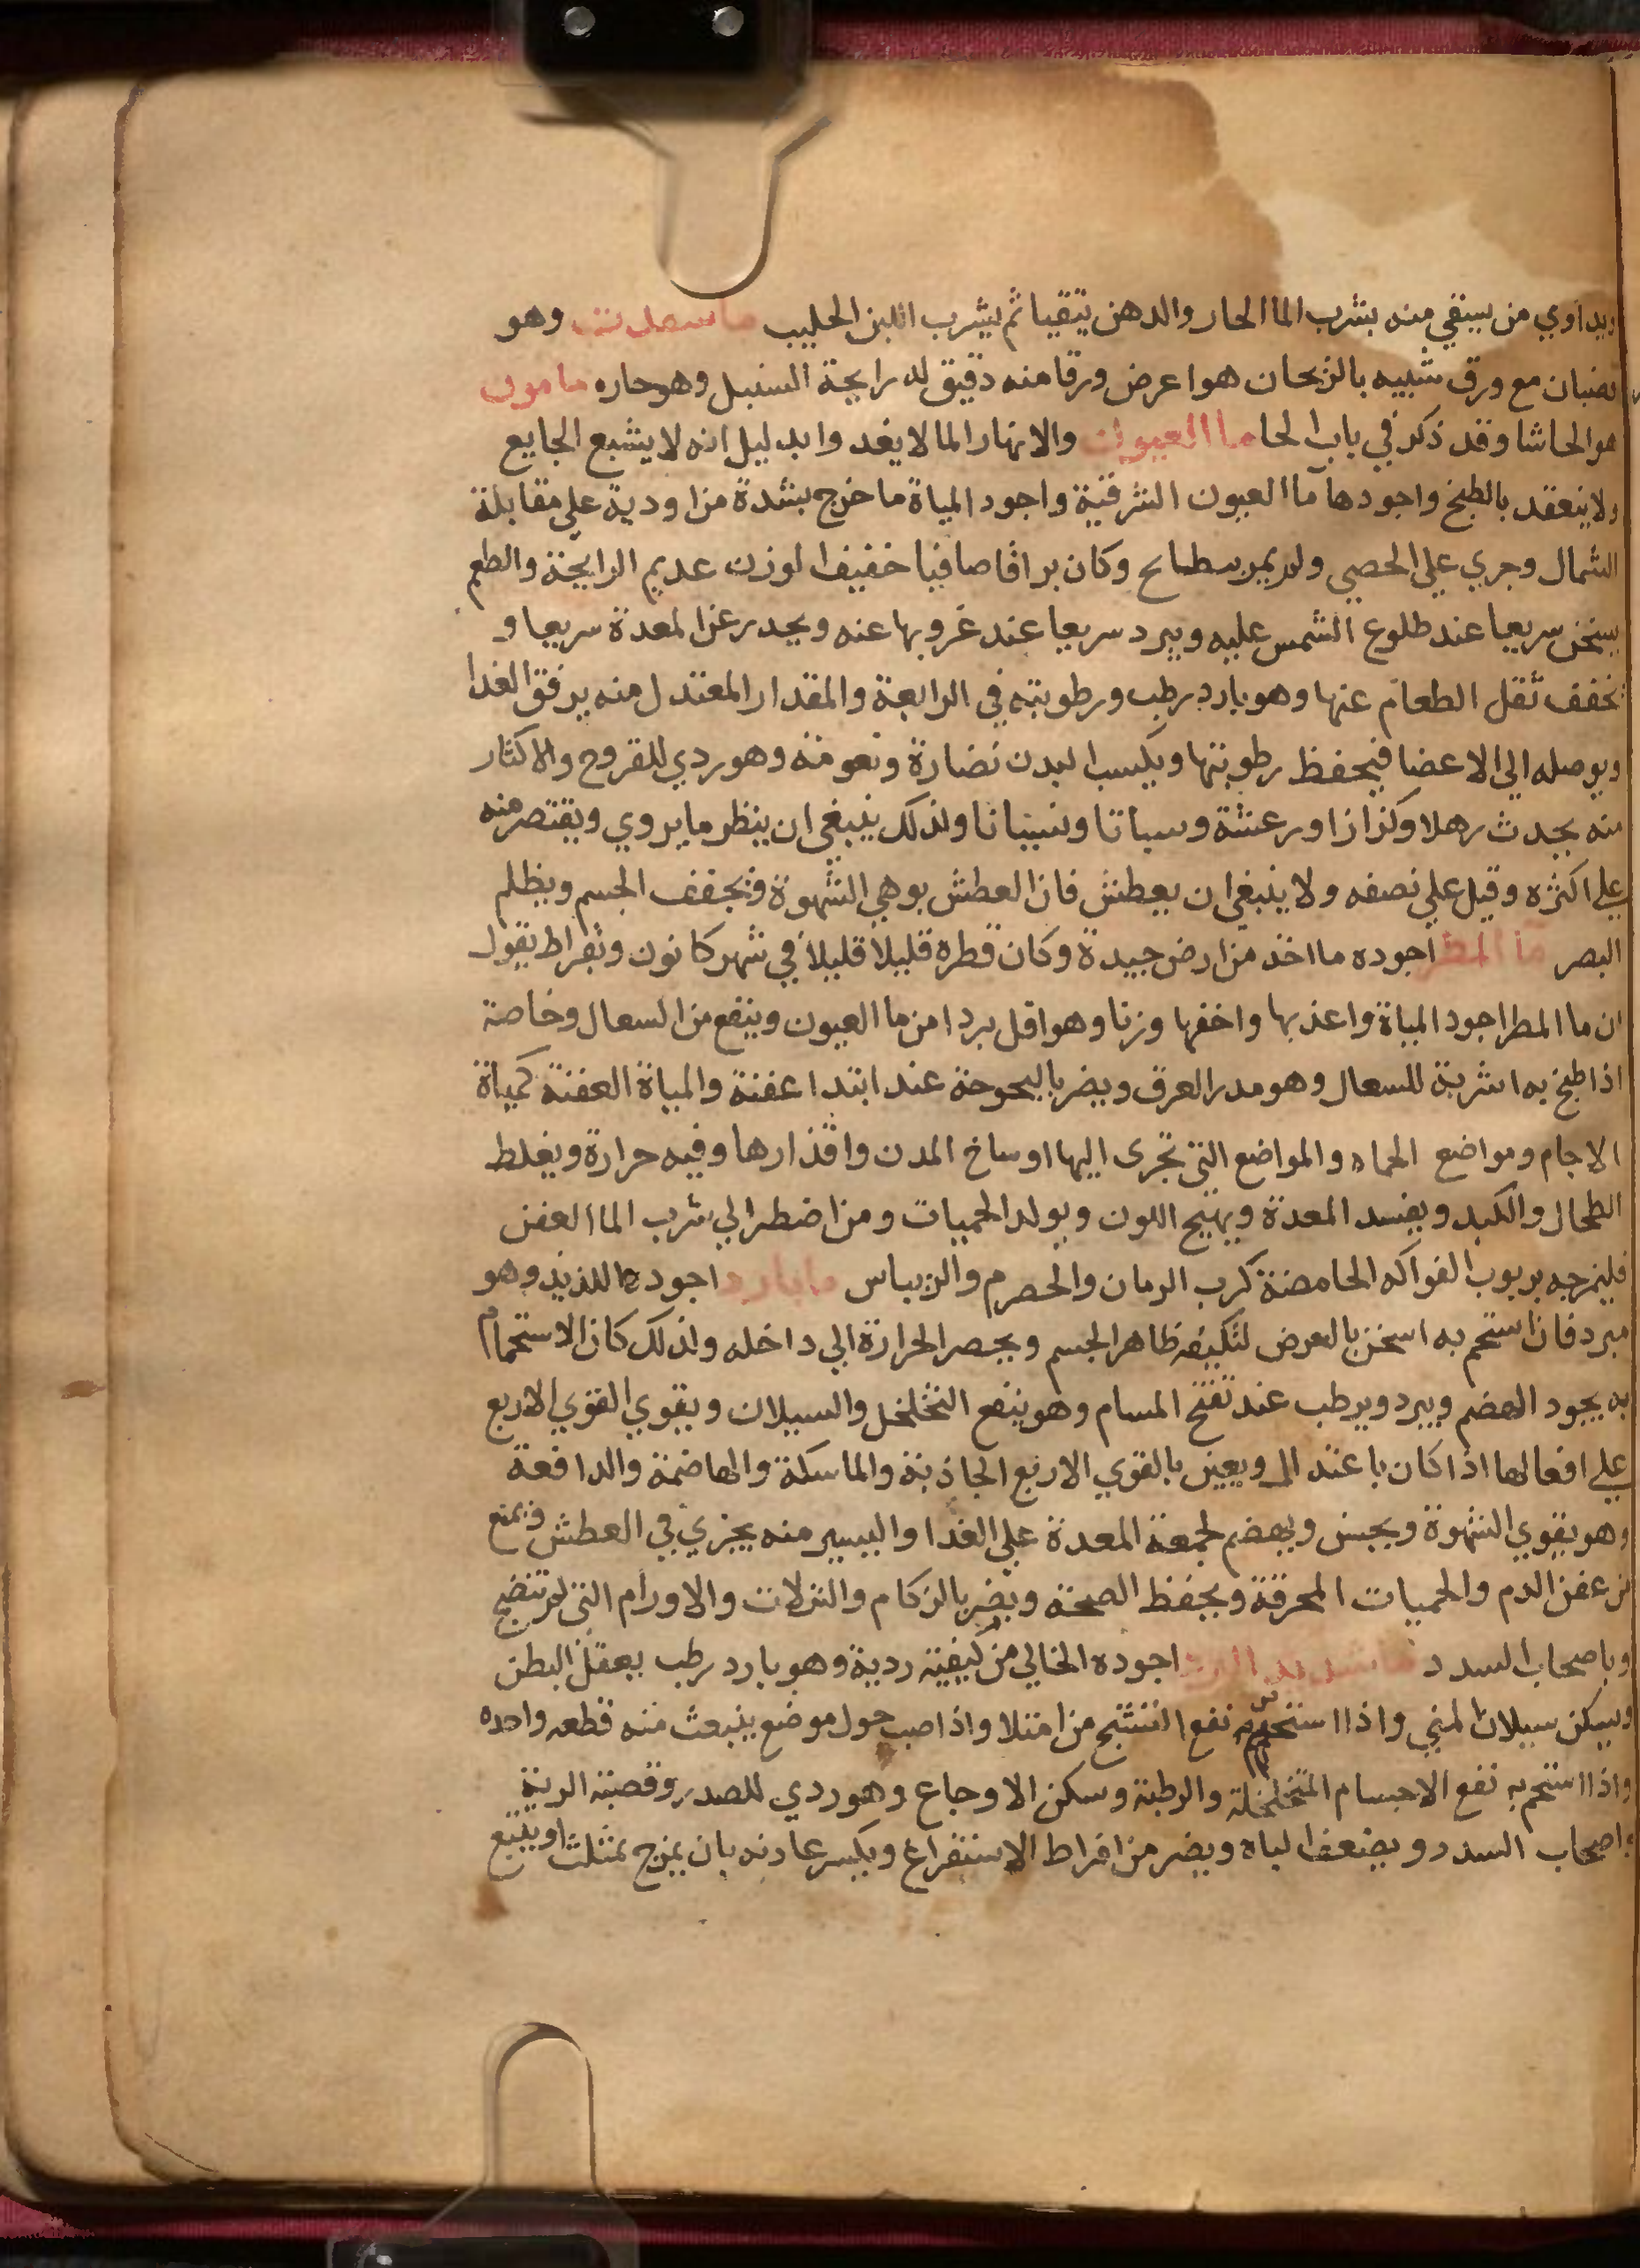 ويداوي من سقي منه بشرب الما الحار والدهن يتقيا ثم يشرب اللبن الحليب وهو
قضبان مع ورق شبيه بالريحان هو اعرض ورقا منه دقيق له رايحة السنبل وهو حاره مامون
هو الحاشا وقد ذكر في باب الحا ما العيون والانهار الما لا يغدوا بدليل انه لا يشبع الجايع
ولا ينعقد بالطبخ واجودها ما العيون الشرقية واجود المياة ما خرج بشدة من اودية علي مقابلة
الشمال وجري علي الحصي ولم يمر وكان براقا صافيا خفيف الوزن عديم الرايحة والطعم
يسخن سريعا عند طلوع الشمس عليه ويبرد سريعا عند غروبها عنه ويحدر عن المعدة سريعا و
تخفف ثقل الطعام عنها وهو بارد رطب ورطوبته في الرابعة والمقدار المعتدل منه يرقق الغدا
ويوصله الي الاعضا فيحفظ رطوبتها ويكسب البدن نضارة ونعومة وهو ردي للقروح والاكثار
منه يحدث رهلا وكزازا ورعشة وسباتا ونسيانا ولذلك ينبغي ان ينظر ما يروي ويقتصر منه
علي اكثره وقيل علي نصفه ولا ينبغي ان يعطش فان العطش يوهي الشهوة ويجفف الجسم ويظلم
البصر ما المطر اجوده ما اخذ من ارض جيدة وكان قطره قليلا قليلا في شهر كانون وبقراط يقول
ان ما المطر اجود المياة واعذبها واخفها وزنا وهو اقل بردا من ما العيون وينفع من السعال وخاصة
اذا طبخ به اشربة للسعال وهو مدر العرق ويضر بالبحوحة عند ابتدا عفنة والمياة العفنة كمياة
الاجام ومواضع الحماه والمواضع التي تجرى اليها اوساخ المدن واقذارها وفيه حرارة ويغلط
الطحال والكبد ويفسد المعدة ويهيج اللون ويولد الحميات ومن اضطر الي شرب الما العفن
فليمزجه بربوب الفواكه الحامضة كرب الرمان والحصرم والريباس ما بارد اجوده اللذيذ وهو
مبرد فان استحم به اسخن بالعرض لتكثيفه ظاهر الجسم ويحصر الحرارة الي داخله ولذلك كان الاستحمام
به يجود الهضم ويبرد ويرطب عند تفتح المسام وهو ينفع التخلخل والسيلان ويقوي القوي الاربع
علي افعالها اذا كان باعتدال ويعين بالقوي الاربع الجاذبة والماسكة والهاضمة والدافعة
وهو يقوي الشهوة ويحبس ويهضم لجمعه المعدة علي الغدا واليسير منه يجزي في العطش ويمنع
من عفن الدم والحميات المحرقة ويحفظ الصحة ويضر بالزكام والنزلات والاورام التي لم تنضج
وباصحاب السدد ما شديد البرد اجوده الخالي من كيفية ردية وهو بارد رطب يعقل البطن
ويسكن سيلان المني واذا استحم به نفع التشنج من امتلا واذا صب حول موضع ينبعث منه قطعه واحده
واذا استحم به نفع الاجسام المتخلخلة والرطبة وسكن الاوجاع وهو ردي للصدر وقصبة الرية
واصحاب السدد ويضعف الباه ويضر من افراط الاستفراغ ويكسر عادته بان يمزج بمثلث او يتبع